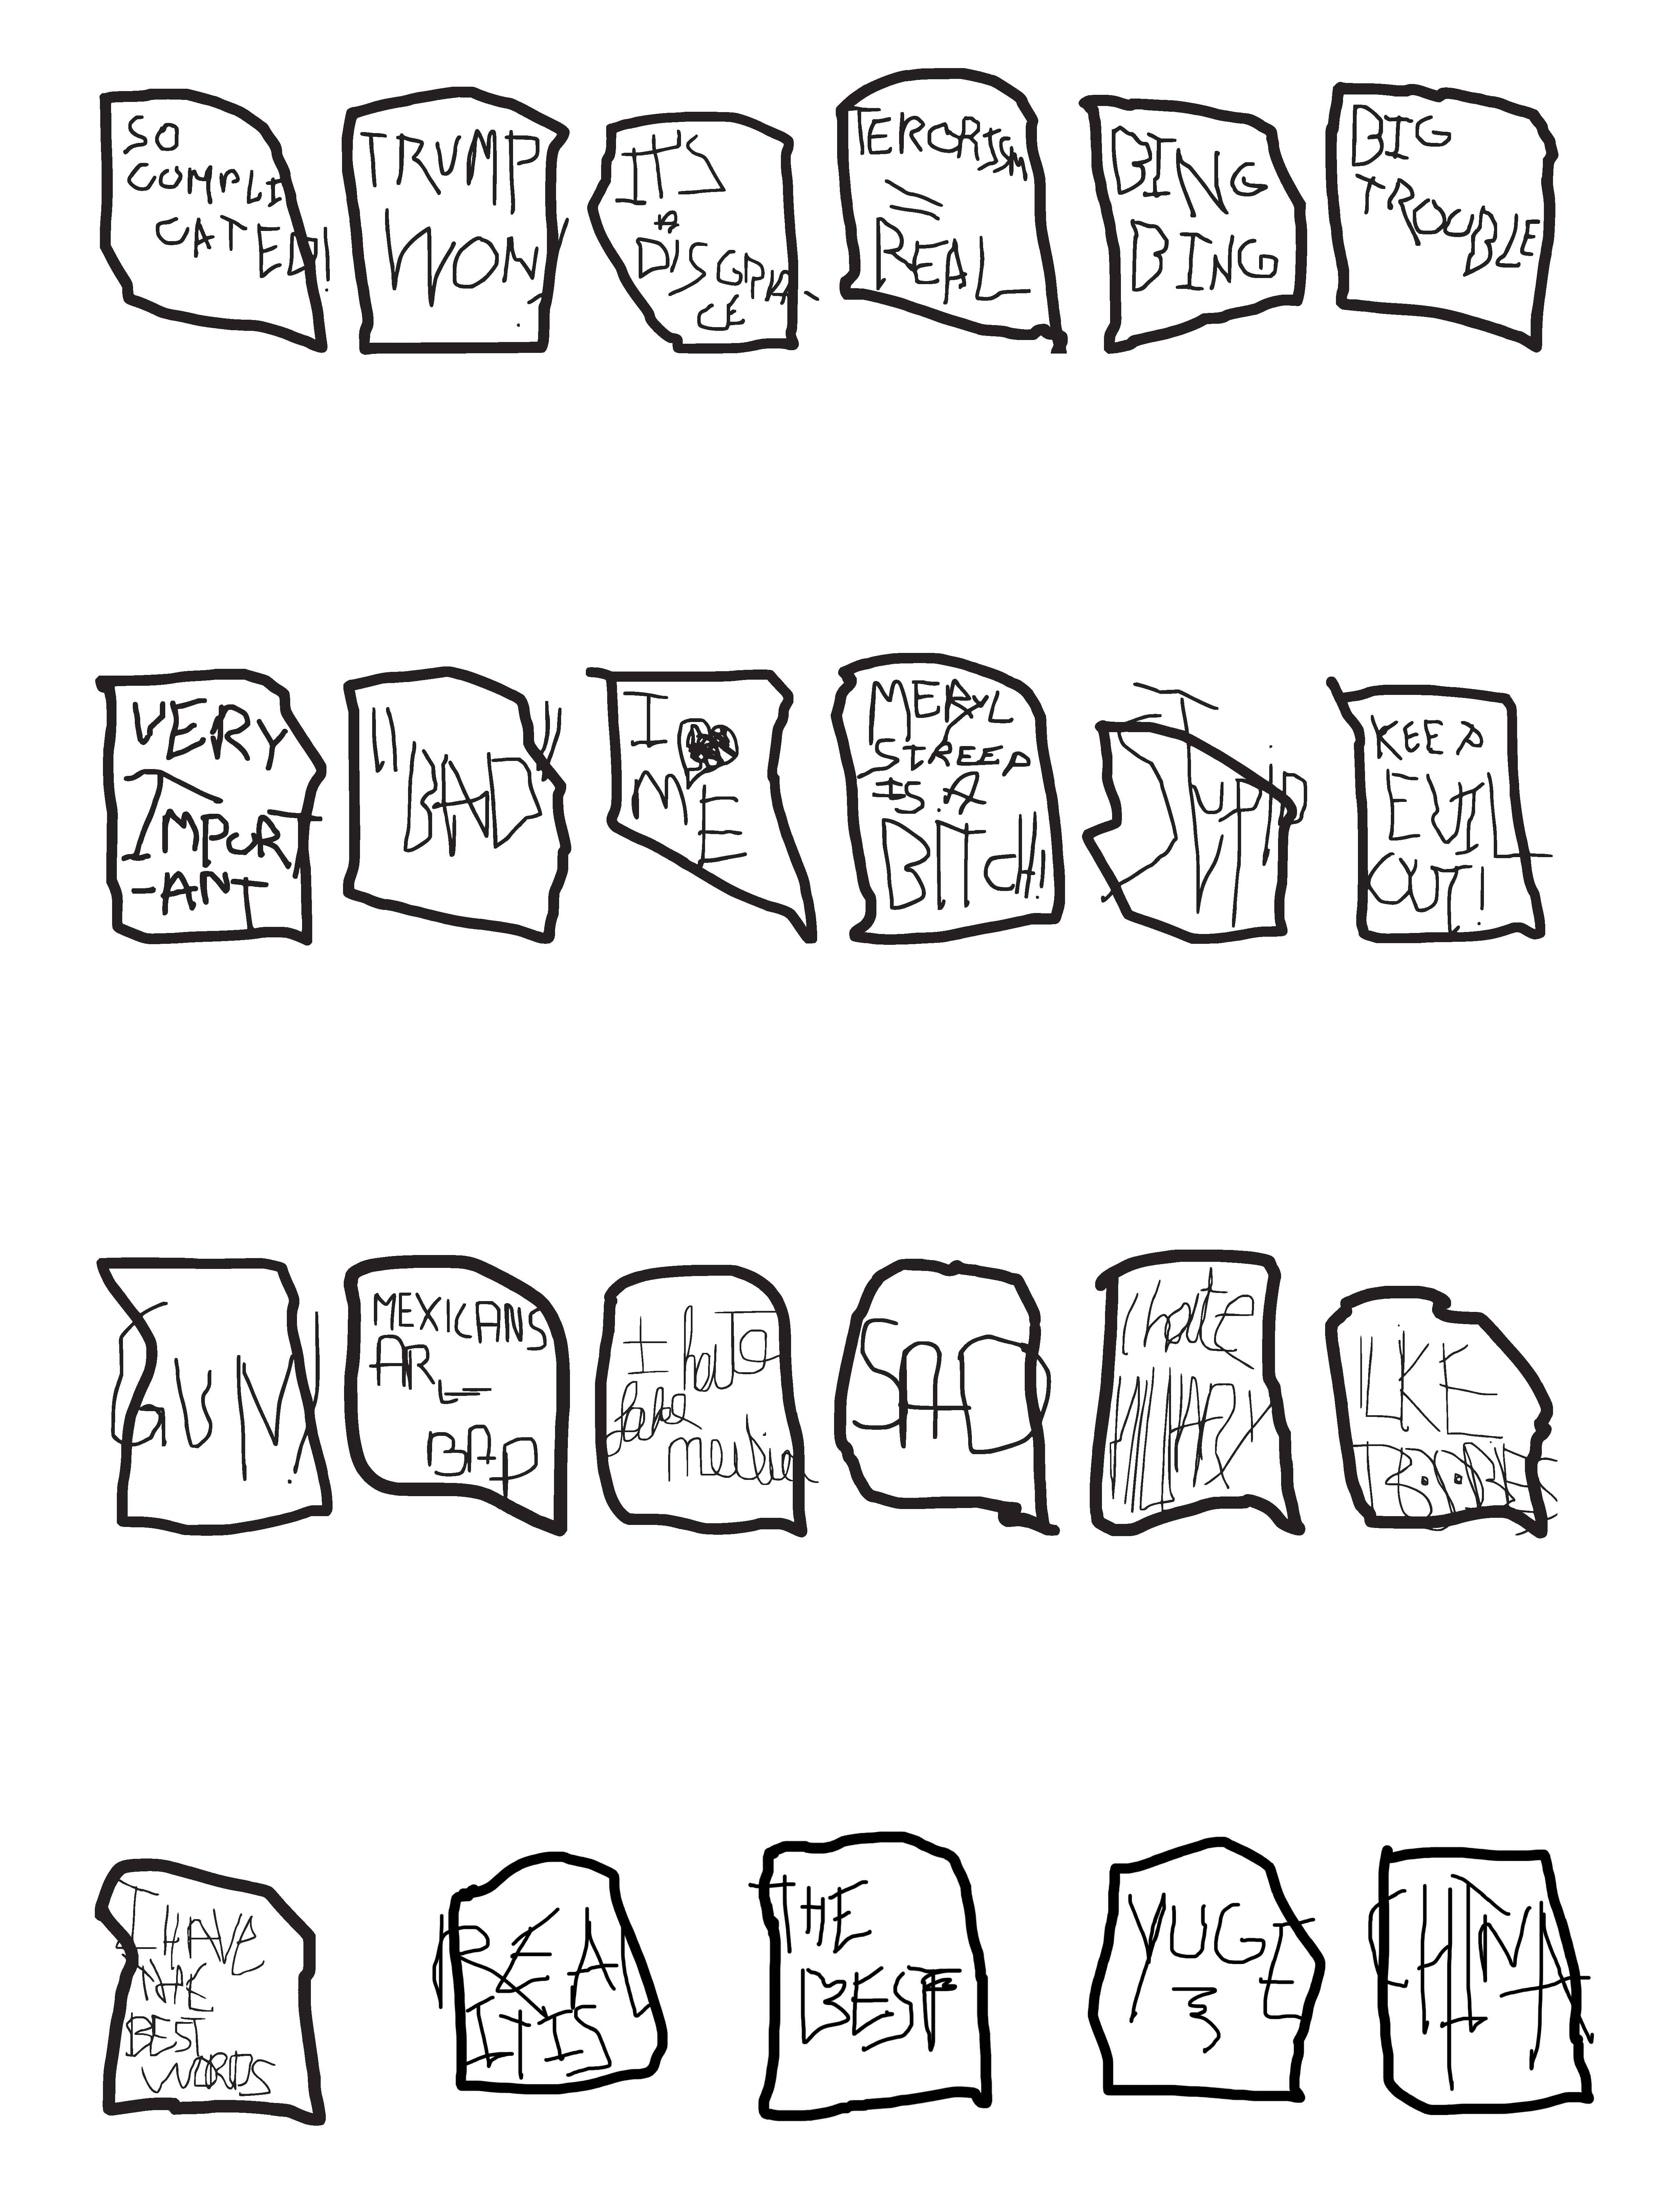 SO
COMPLI
CATED!
TRUMP
WON!
IT'S
A
DISGRA-
CE
TERORISM
=
REAL
BING
BING
BIG
TROUBLE
VERY
IMPORT
-ANT
"BAD"
I
ME
MERYL
STREEP
IS A
BITCH!
STUPID
KEEP
EVIL
OUT!
GUN!
MEXICANS
ARE
BAD
I hate
fake
media
SAD
I hate
HILLARY
I LIKE
BOOBS
I HAVE
THE
BEST
WORDS
REAL
IT IS
THE
BEST
YUGE
CHINA